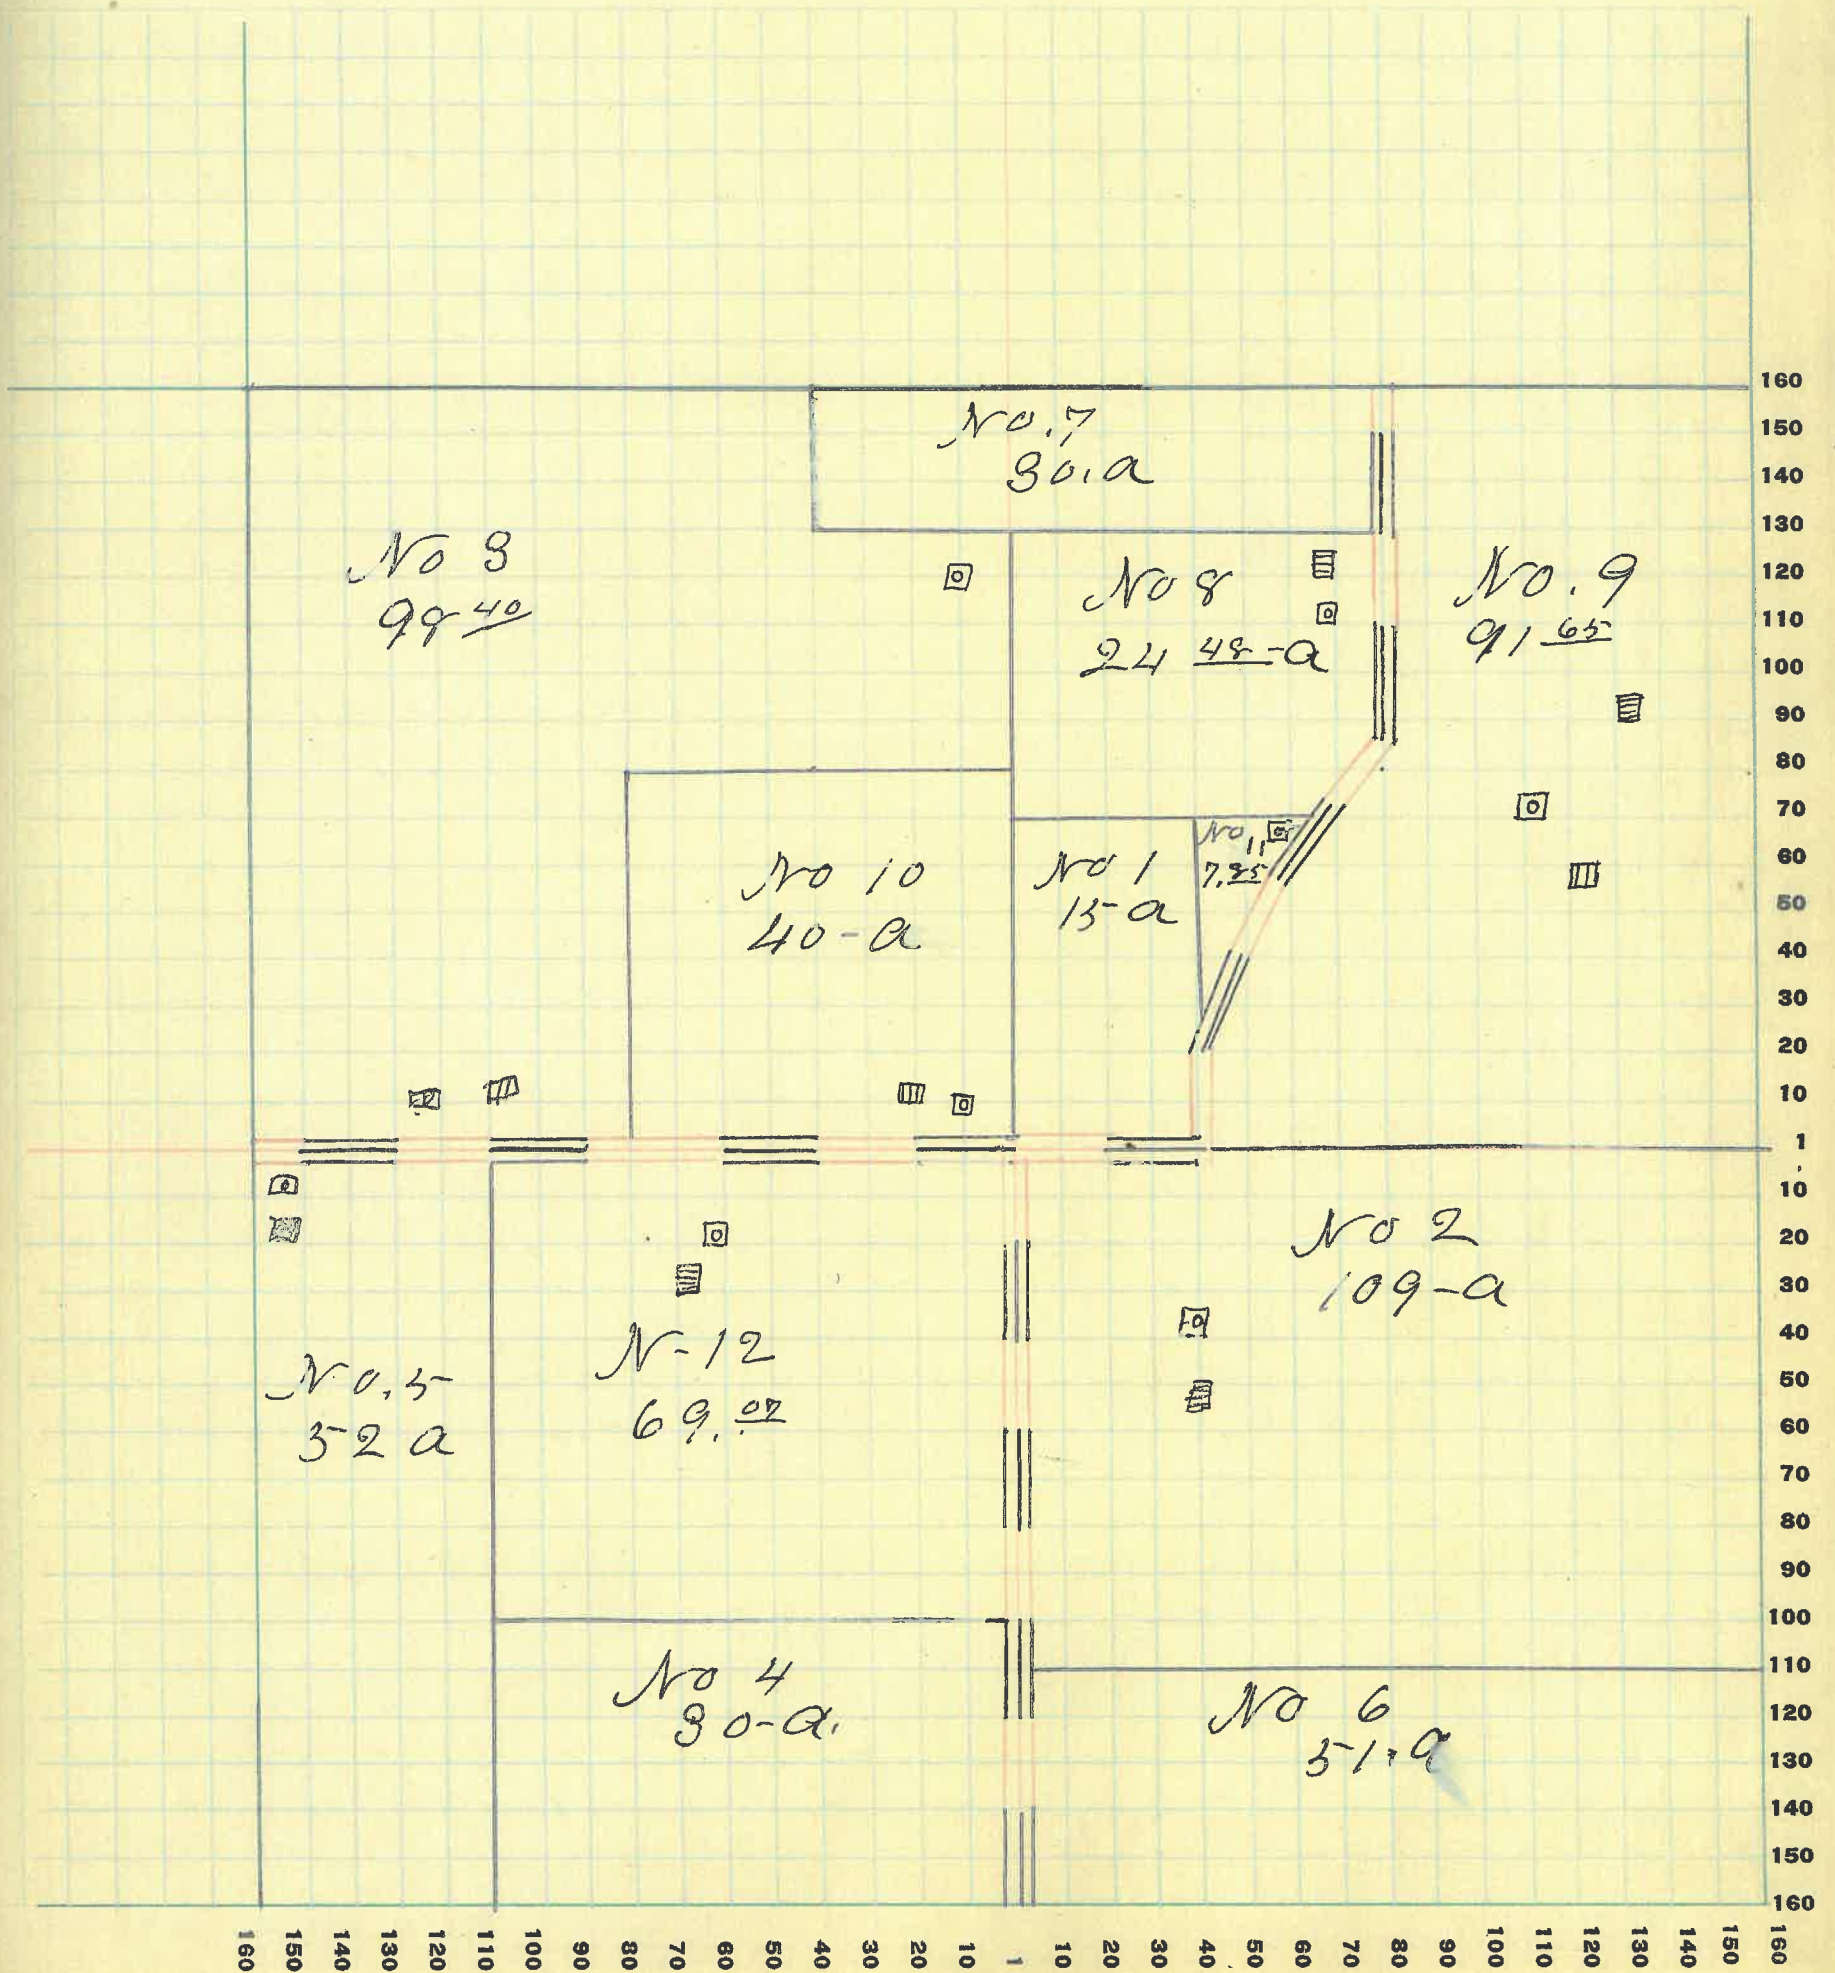 No. 7
30. a
No 3
98 40
No 8
24 48 - a
No. 9
91 65
No 10
40 - a
No 1
15 - a
No. 11
7. 85
No 2
109 - a
N - 12
69. 07
No. 5
52 a
No 4
30 - a.
No 6
51. a
160
150
140
130
120
110
100
90
80
70
60
50
40
30
20
10
1
10
20
30
40
50
60
70
80
90
100
110
120
130
140
150
160
160 150 140 130 120 110 100 90 80 70 60 50 40 30 20 10 1 10 20 30 40 50 60 70 80 90 100 110 120 130 140 150 160